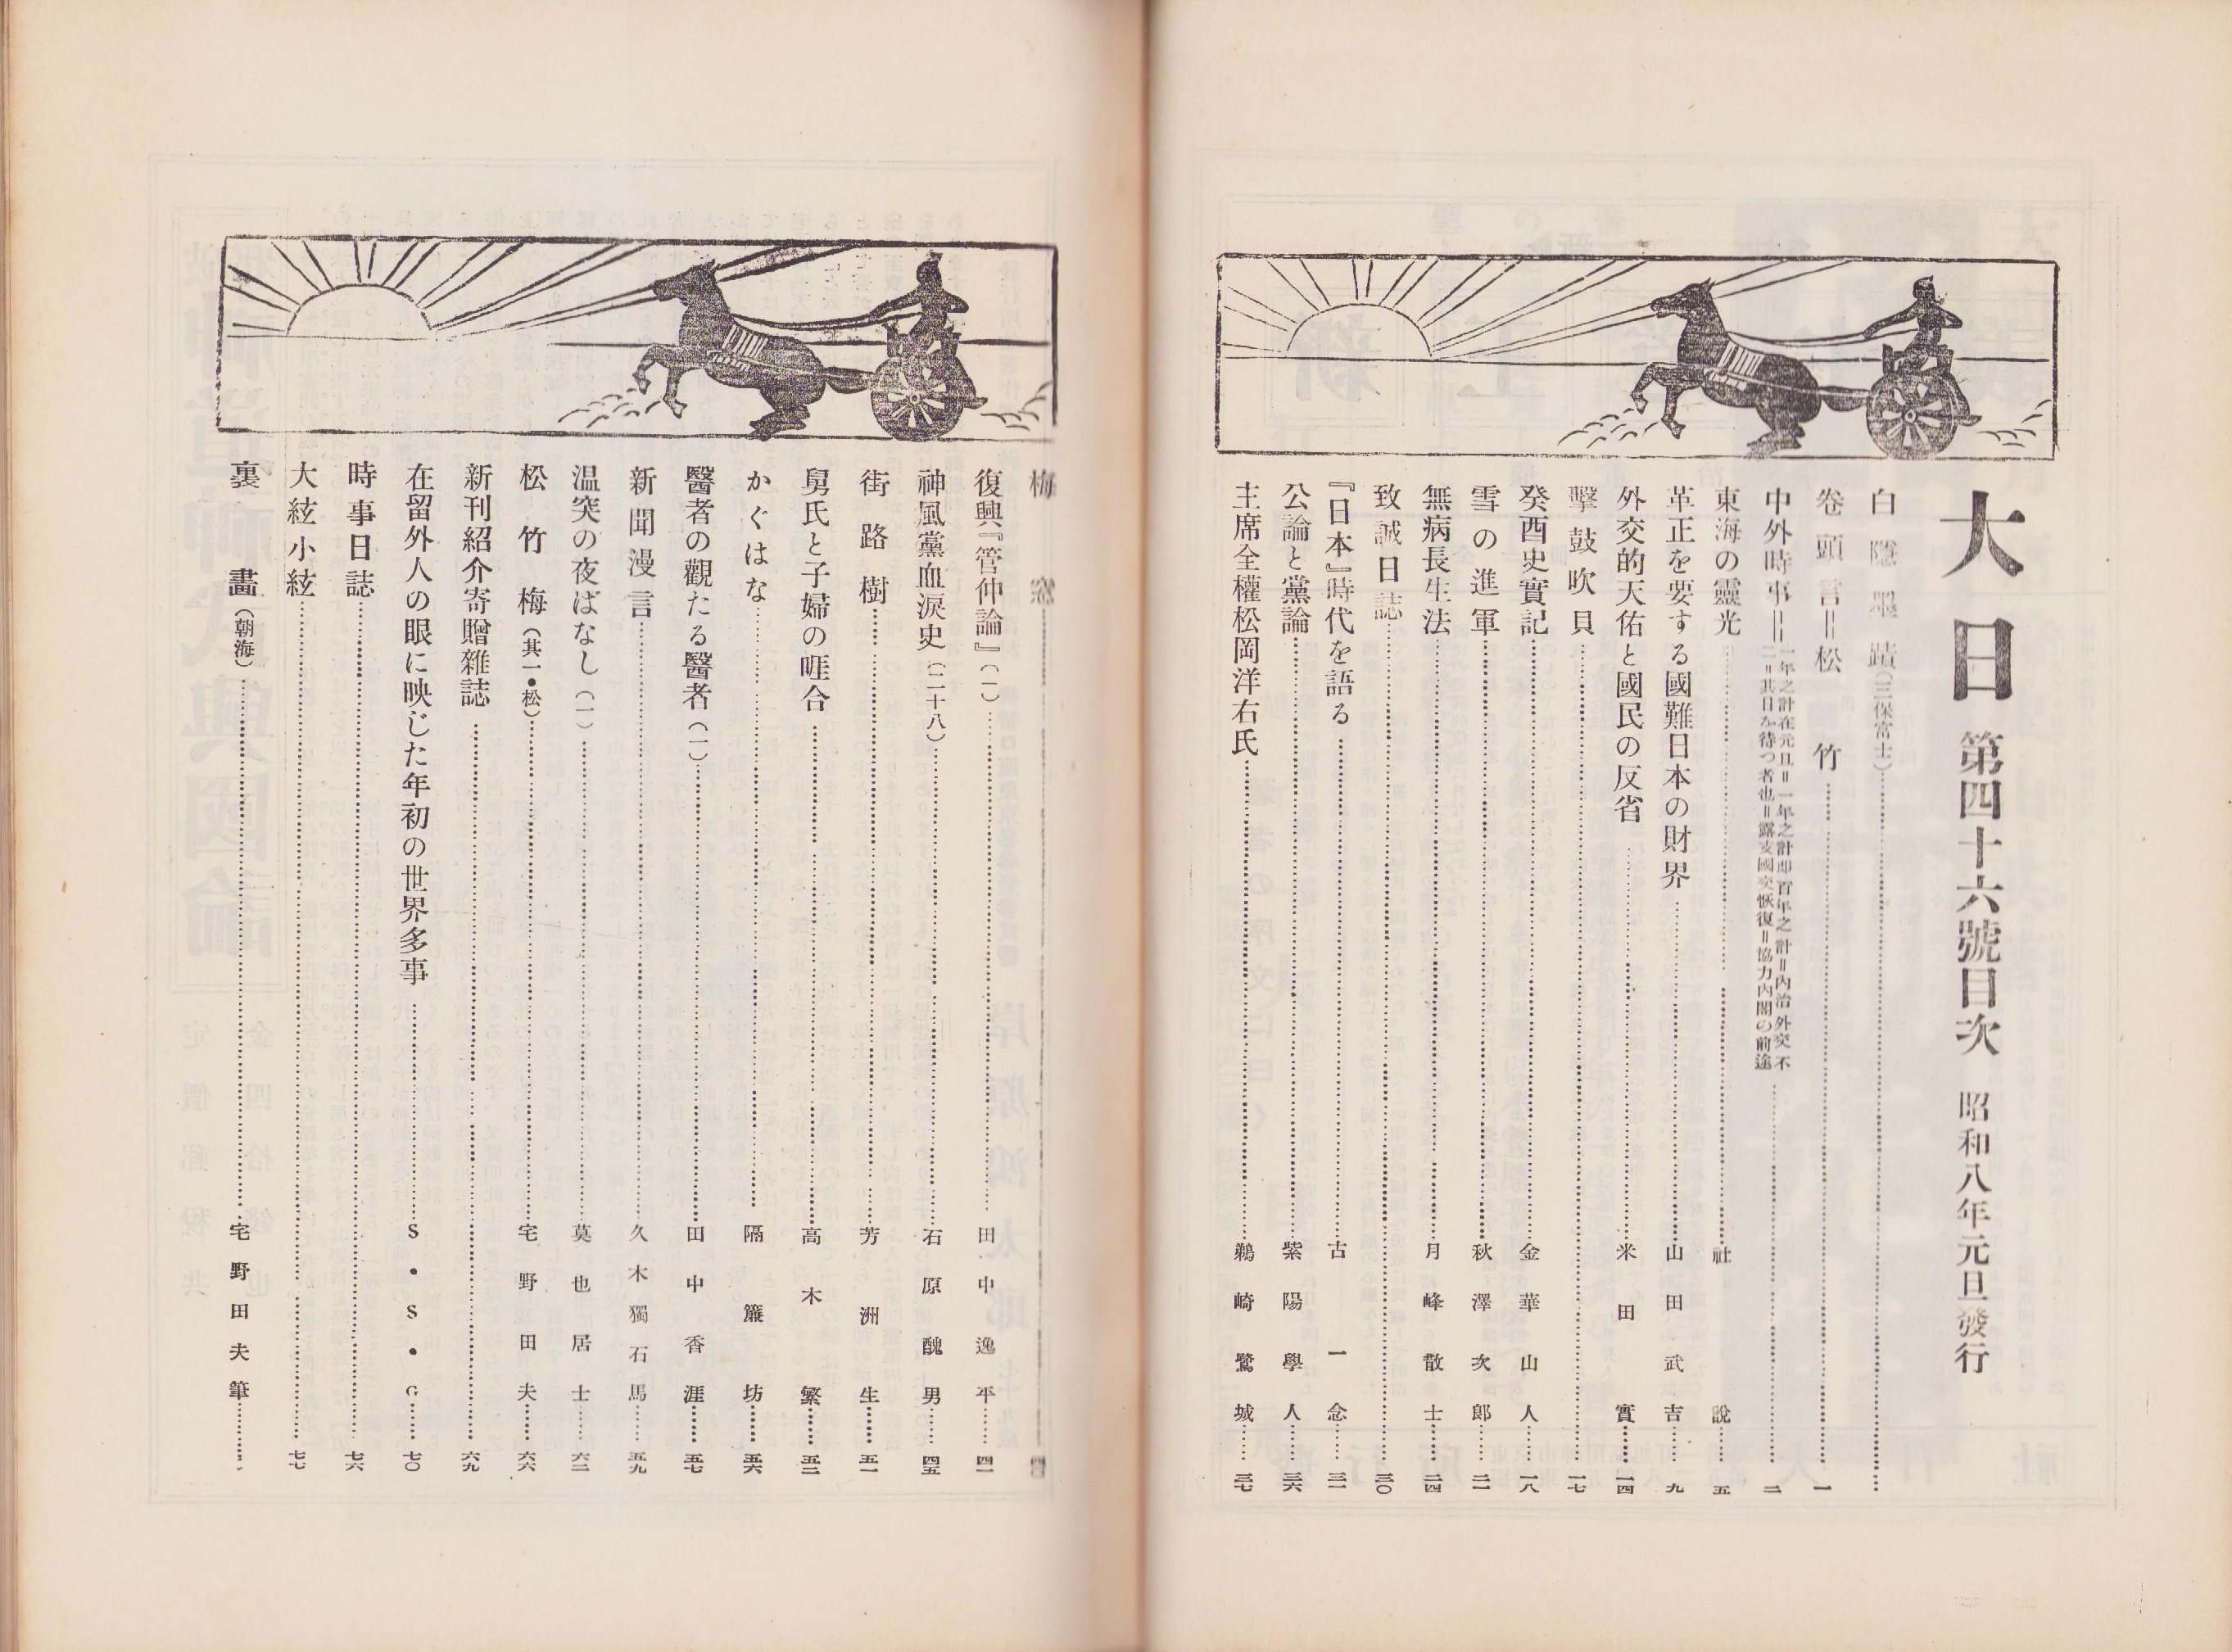 大日 第四十六號目次 昭和八年元旦發行
白隱墨蹟(三保富士)
卷頭言=松竹 一
中外時事=一年之計在元旦=一年之計即百年之計=內治外交不二=其日を待つ者也=露支國交恢復=協力內閣の前途 二
東海の靈光 社說 五
革正を要する國難日本の財界 山田武吉 九
外交的天佑と國民の反省 米田實 一四
擊鼓吹貝 一七
癸酉史實記 金華山人 一八
雪の進軍 秋澤次郎 二一
無病長生法 月峰散士 二四
致誠日誌 三〇
『日本』時代を語る 古一念 三一
公論と黨論 紫陽學人 三六
主席全權松岡洋右氏 鵜崎鷺城 三七
梅窓
復興『管仲論』(一) 田中逸平 四一
神風黨血淚史(二十八) 石原醜男 四五
街路樹 芳洲生 五一
舅氏と子婦の啀合 高木繁 五二
かぐはな 隔簾坊 五六
醫者の觀たる醫者(一) 田中香涯 五七
新聞漫言 久木獨石馬 五九
溫突の夜ばなし(一) 莫也居士 六二
松竹梅(其一・松) 宅野田夫 六六
新刊紹介寄贈雜誌 六九
在留外人の眼に映じた年初の世界多事 S・S・G 七〇
時事日誌 七六
大絃小絃 七七
裏畫(朝海) 宅野田夫筆